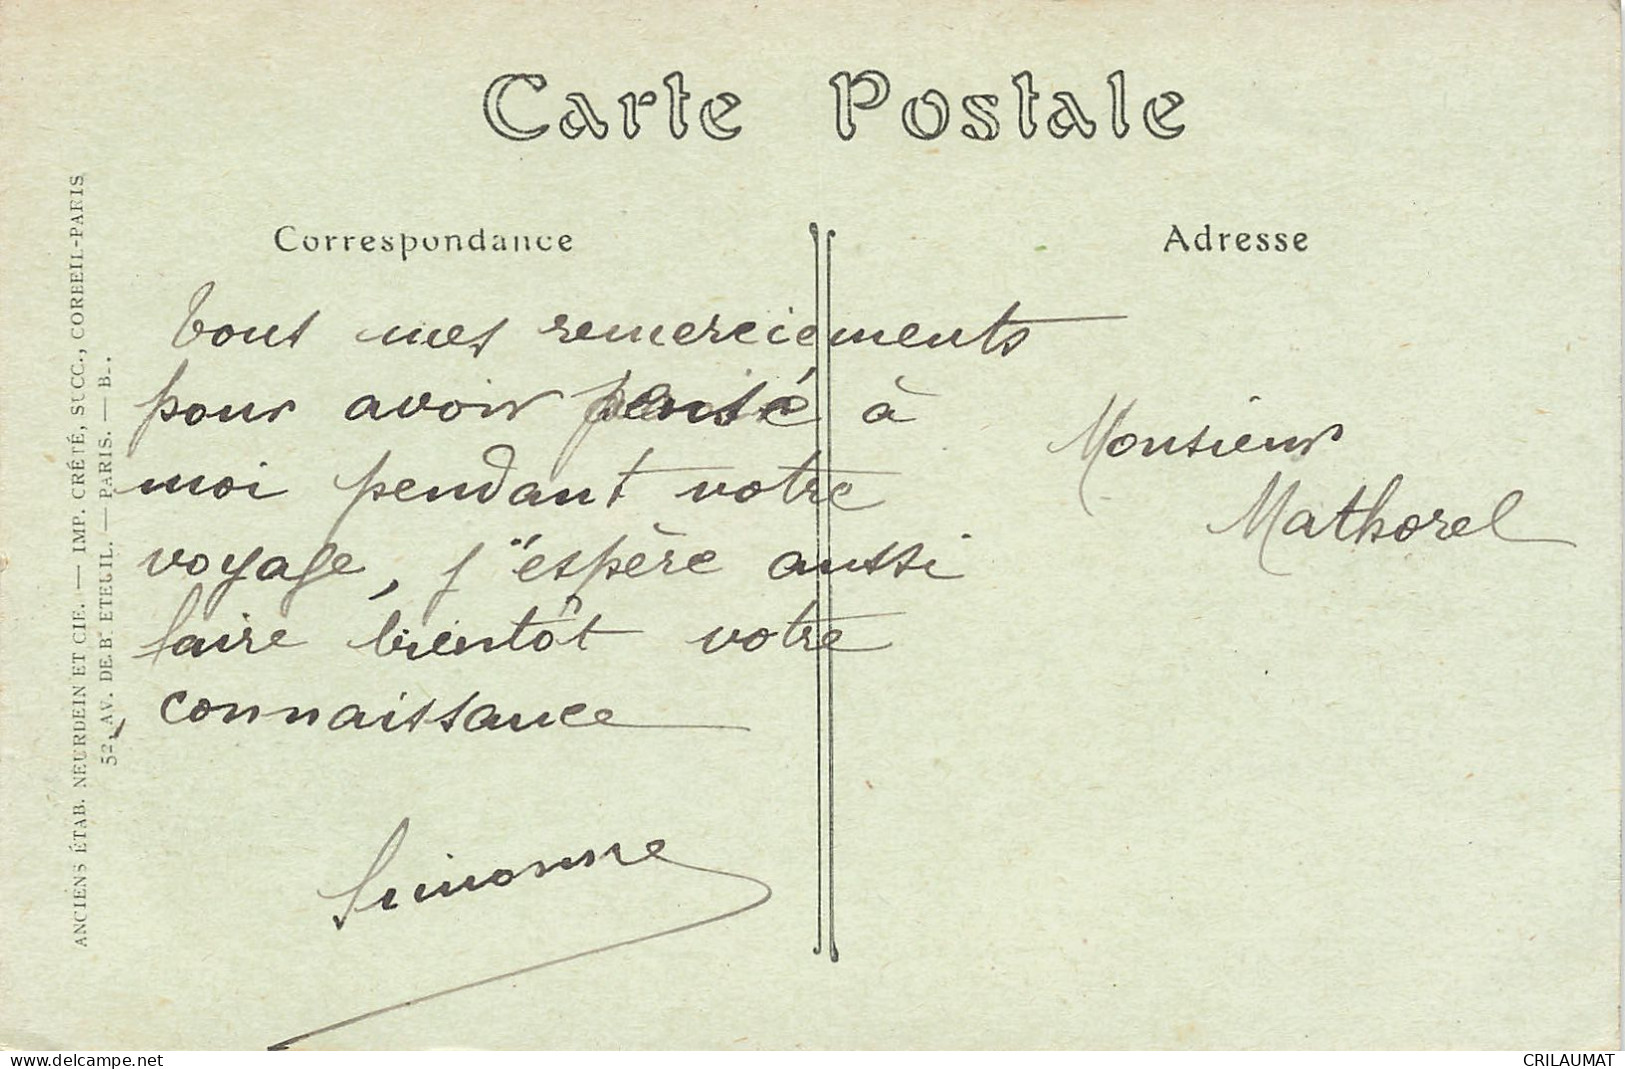 Carte Postale
Correspondance
Adresse
Tous mes remerciements
pour avoir pensé à
moi pendant votre
voyage, j'espère aussi
faire bientôt votre
connaissance
Simonne
Monsieur
Mathorel
ANCIENS ÉTAB. NEURDEIN ET CIE. — IMP. CRÉTÉ, SUCC., CORBEIL-PARIS
52, AV. DE BRETEUIL. — PARIS. — B..
delcampe.net
CRILAUMAT